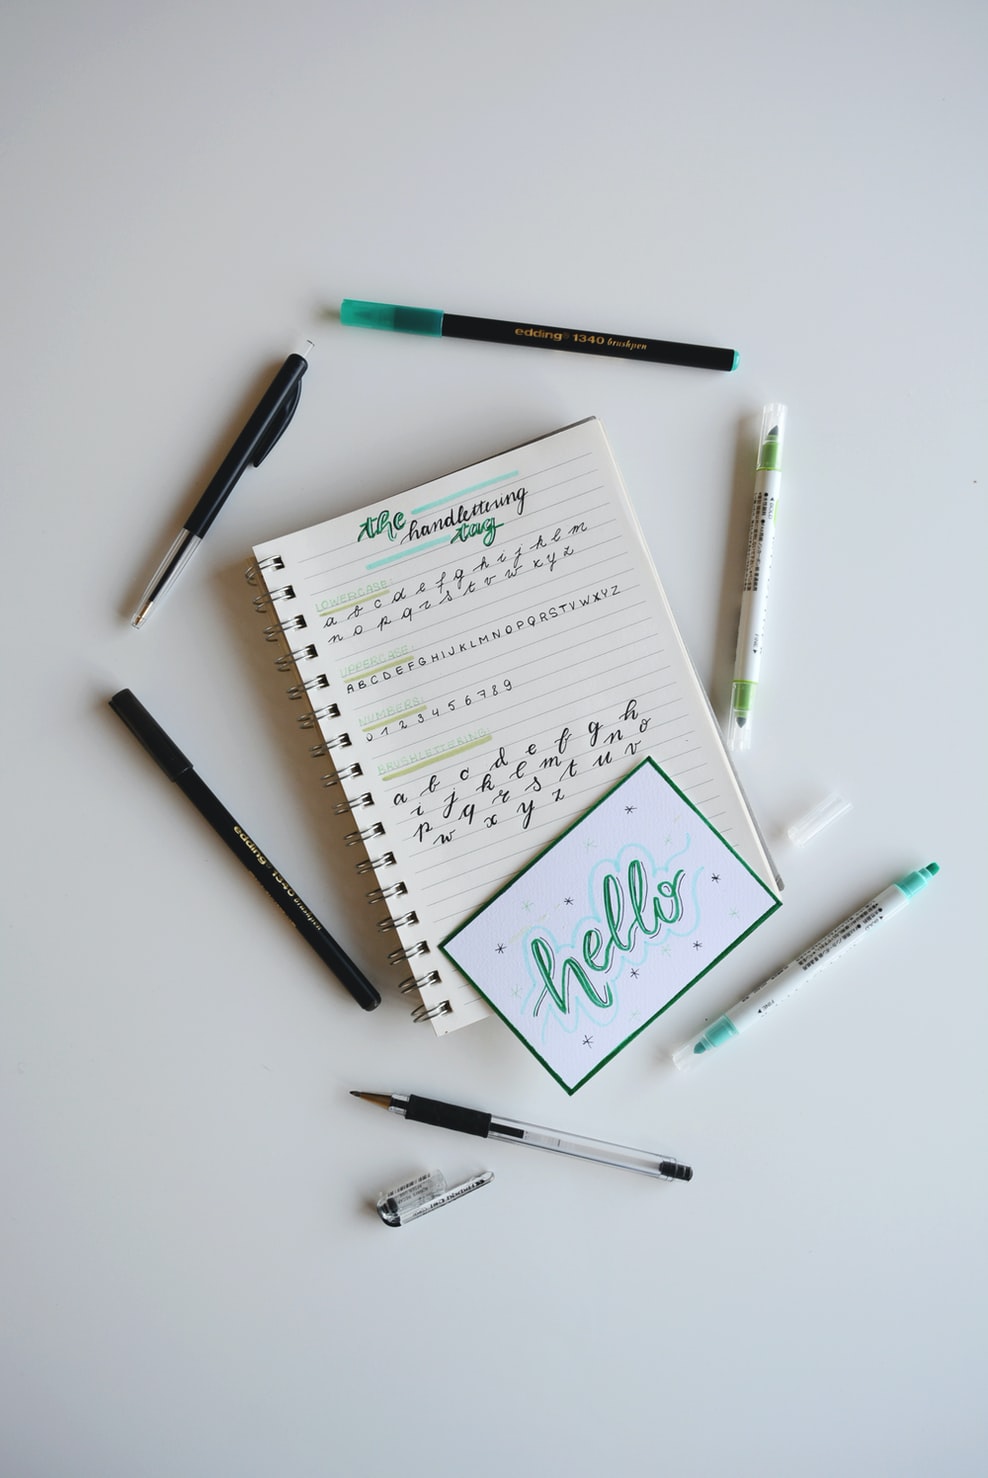 edding® 1340 brushpen
the handlettering
tag
LOWERCASE:
a b c d e f g h i j k l m
n o p q r s t v w x y z
UPPERCASE:
A B C D E F G H I J K L M N O P Q R S T V W X Y Z
NUMBERS:
0 1 2 3 4 5 6 7 8 9
BRUSHLETTERING:
a b c d e f g h
i j k l m n o
p q r s t u v
w x y z
hello
edding® 1340 brushpen
FINE
FINE